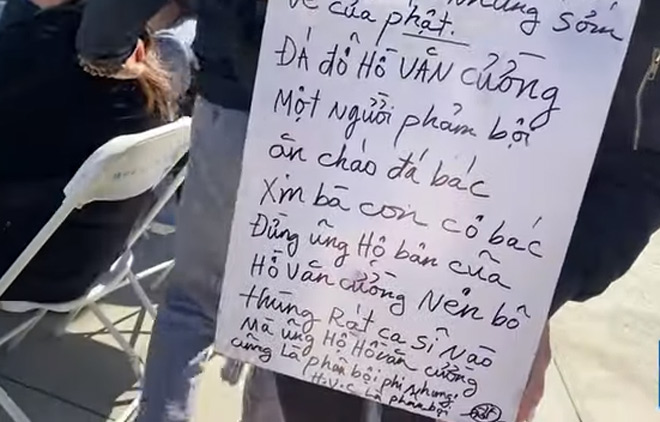 Về của phật.
ĐÁ đổ HỒ VĂN CƯỜNG
Một người phảm bội
ăn cháo đá bác
Xin bà con cô bác
Đừng ủng Hộ bản của
Hồ Văn Cường Nên bỏ
thùng Rát ca sĩ nào
Mà ủng Hộ Hồ văn cường
cũng Là phản bội phi Nhung.
H.V.C Là phản bội